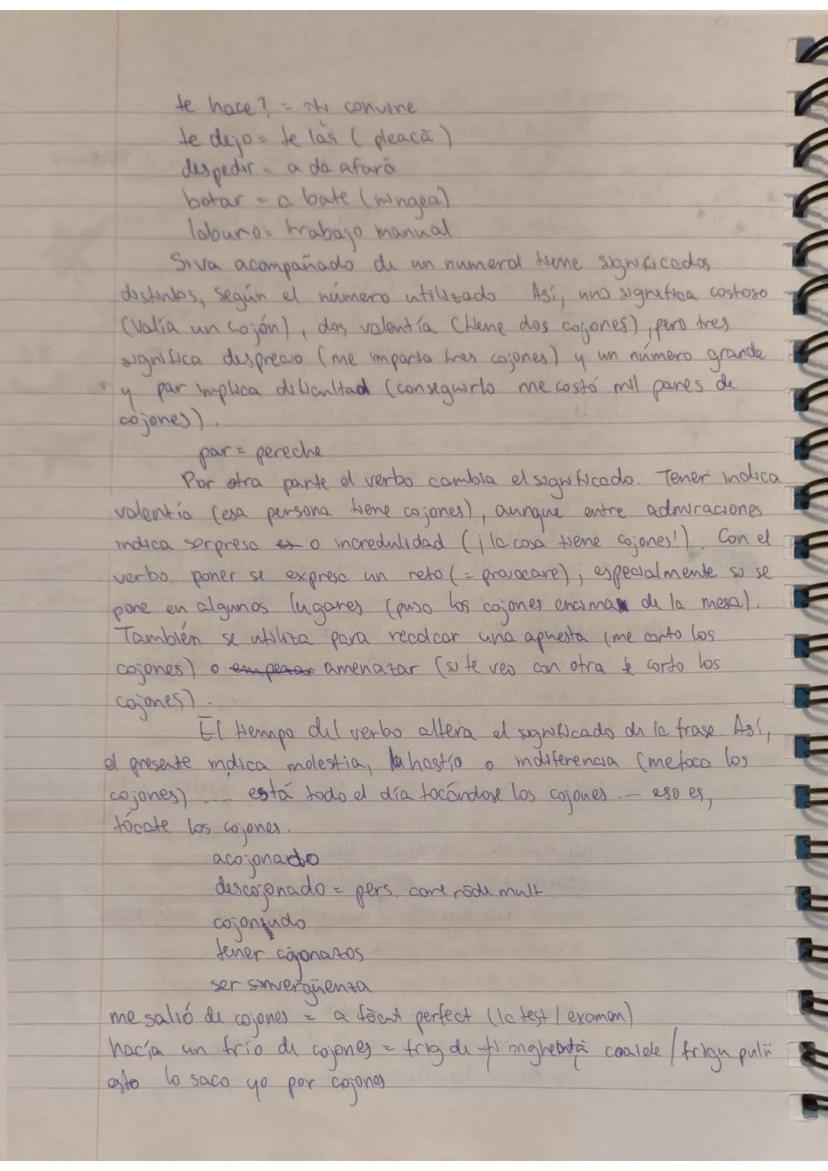 te hace? = îți convine
te dejo = te las (pleacă)
despedir = a da afară
botar = a bate (mingea)
laburo = trabajo manual
Si va acompañado de un numeral tiene significados
distintos, según el número utilizado Así, uno significa costoso
(valía un cojón), dos valentía (tiene dos cojones), pero tres
significa desprecio (me importa tres cojones) y un número grande
y par implica dificultad (conseguirlo me costó mil pares de
cojones).
par = pereche
Por otra parte el verbo cambia el significado. Tener indica
valentía (esa persona tiene cojones), aunque entre admiraciones
indica sorpresa o incredulidad (¡la cosa tiene cojones!). Con el
verbo poner se expresa un reto (= provocare), especialmente si se
pone en algunos lugares (puso los cojones encima de la mesa).
También se utiliza para recalcar una apuesta (me corto los
cojones) o amenazar (si te veo con otra te corto los
cojones).
El tiempo del verbo altera el significado de la frase. Así,
el presente indica molestia, hastío o indiferencia (me toco los
cojones) .... está todo el día tocándose los cojones — eso es,
tócate los cojones.
acojonado
descojonado = pers. care râde mult
cojonudo
tener cojonazos
ser sinvergüenza
me salió de cojones = a făcut perfect (la test / examen)
hacía un frío de cojones = frig de ți îngheață coaiele / frigu pulii
esto lo saco yo por cojones